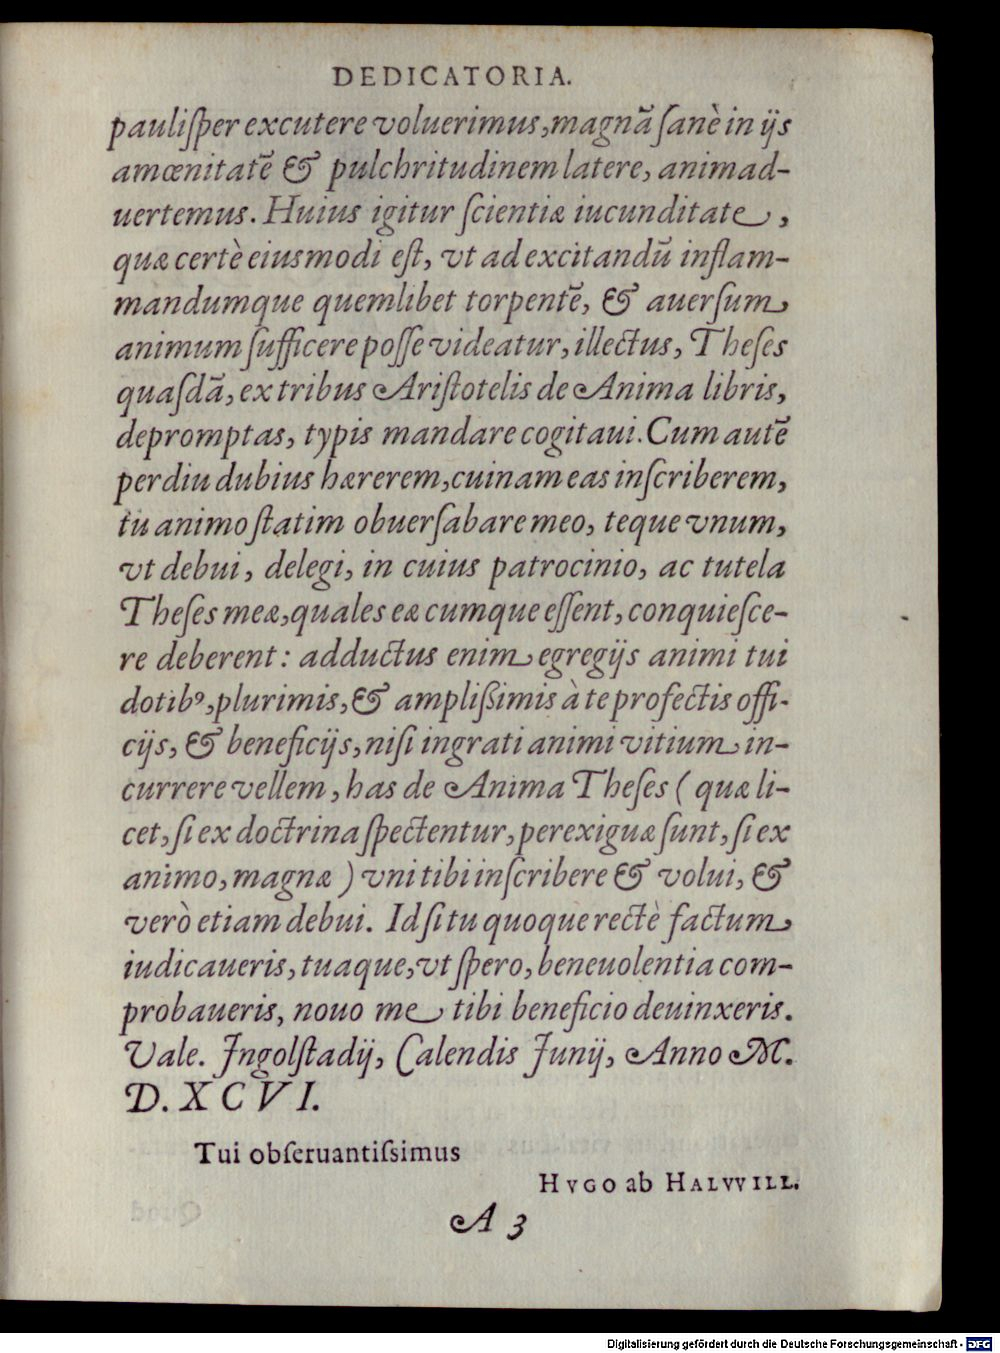 DEDICATORIA.
pauliſper excutere voluerimus, magnā ſanè in ijs
amœnitatē & pulchritudinem latere, animad-
uertemus. Huius igitur ſcientiæ iucunditate,
quæ certè eiusmodi eſt, vt ad excitandū inflam-
mandumque quemlibet torpentē, & auerſum
animum ſufficere poſſe videatur, illectus, Theſes
quaſdā, ex tribus Ariſtotelis de Anima libris,
depromptas, typis mandare cogitaui. Cum autē
perdiu dubius hærerem, cuinam eas inſcriberem,
tu animo ſtatim obuerſabare meo, teque vnum,
vt debui, delegi, in cuius patrocinio, ac tutela
Theſes meæ, quales eæ cumque eſſent, conquieſce-
re deberent: adductus enim egregijs animi tui
dotibꝰ, plurimis, & ampliſſimis à te profectis offi-
cijs, & beneficijs, niſi ingrati animi vitium in-
currere vellem, has de Anima Theſes (quæ li-
cet, ſi ex doctrina ſpectentur, perexiguæ ſunt, ſi ex
animo, magnæ) vni tibi inſcribere & volui, &
verò etiam debui. Id ſi tu quoque rectè factum
iudicaueris, tuaque, vt ſpero, beneuolentia com-
probaueris, nouo me tibi beneficio deuinxeris.
Vale. Ingolſtadij, Calendis Junij, Anno M.
D. X C V I.
Tui obſeruantiſsimus
HVGO ab HALVVILL.
A 3
Digitalisierung gefördert durch die Deutsche Forschungsgemeinschaft - DFG